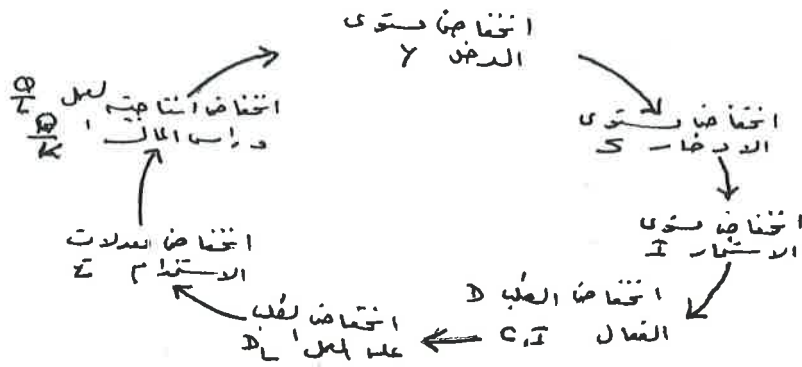 انخفاض مستوى
الدخل Y
انخفاض مستوى
الادخار S
انخفاض مستوى
الاستثمار I
انخفاض الطلب D
الفعال C,I
انخفاض الطلب
على العمل D_L
انخفاض معدلات
الاستخدام E
انخفاض انتاجية العمل Q/L
وراس المال Q/K